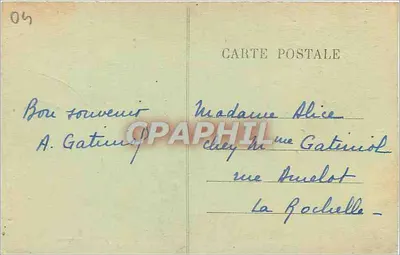 04
CARTE POSTALE
Bon souvenir
A. Gatiniol
Madame Alice
chez Mme Gatiniol
rue Amelot
La Rochelle
CPAPHIL